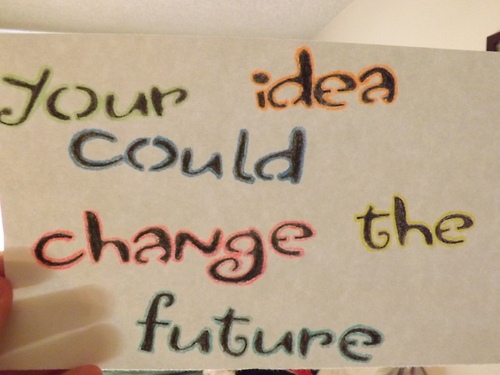 your idea
could
change the
future